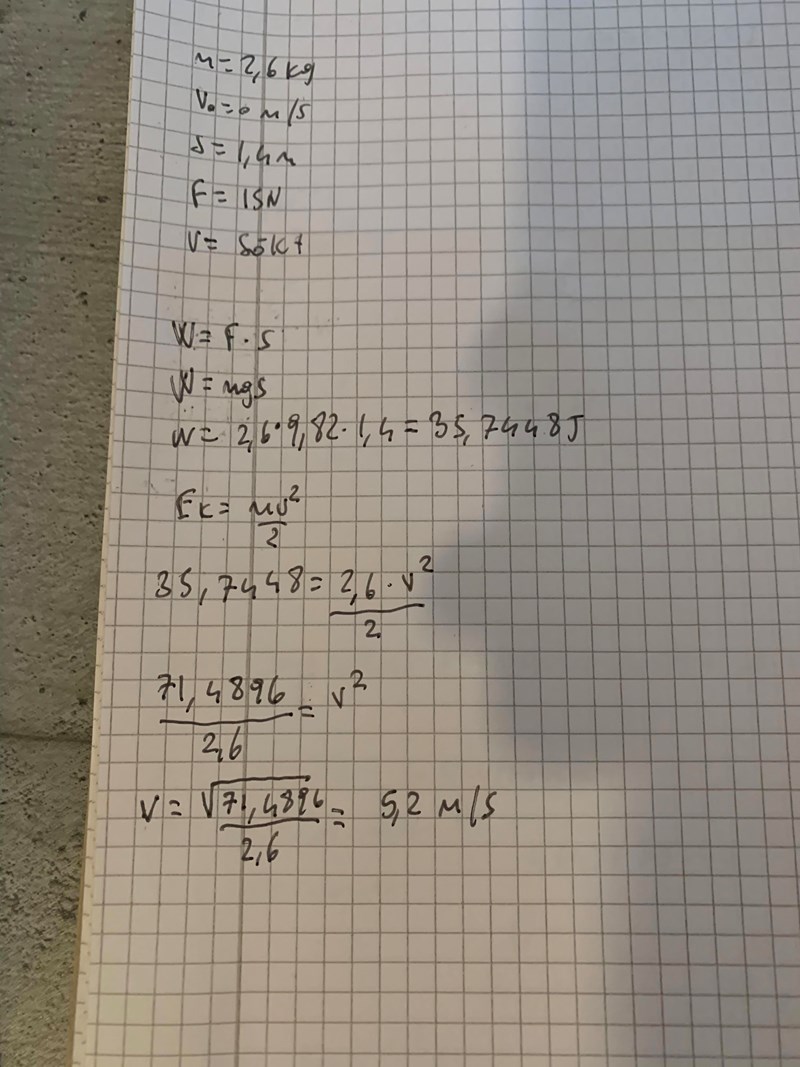 m = 2,6 kg
V₀ = 0 m/s
s = 1,4 m
F = 15N
V =
W = F · s
W = mgs
W = 2,6 · 9,82 · 1,4 = 35,7448 J
Ek = mv²/2
35,7448 = 2,6 · v²/2
71,4896/2,6 = v²
V = √71,4896/2,6 = 5,2 m/s